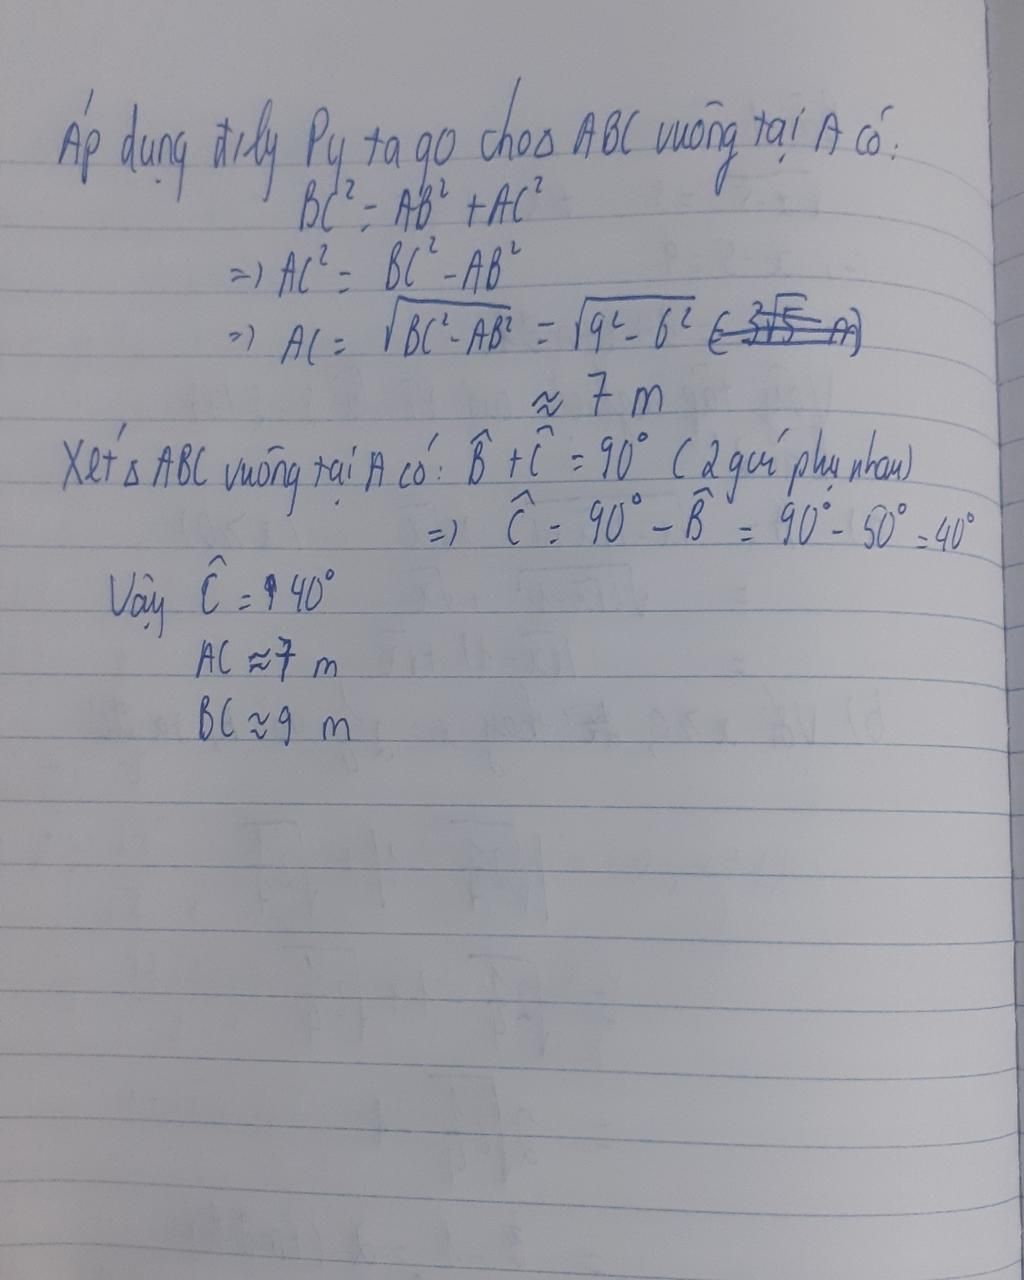 Áp dụng đ.lý Py ta go cho Δ ABC vuông tại A có:
BC² = AB² + AC²
=) AC² = BC² - AB²
=) AC = √BC² - AB² = √9² - 6² (= 3√5 m)
≈ 7 m
Xét Δ ABC vuông tại A có: B̂ + Ĉ = 90° (2 góc phụ nhau)
=) Ĉ = 90° - B̂ = 90° - 50° = 40°
Vậy Ĉ = 40°
AC ≈ 7 m
BC ≈ 9 m